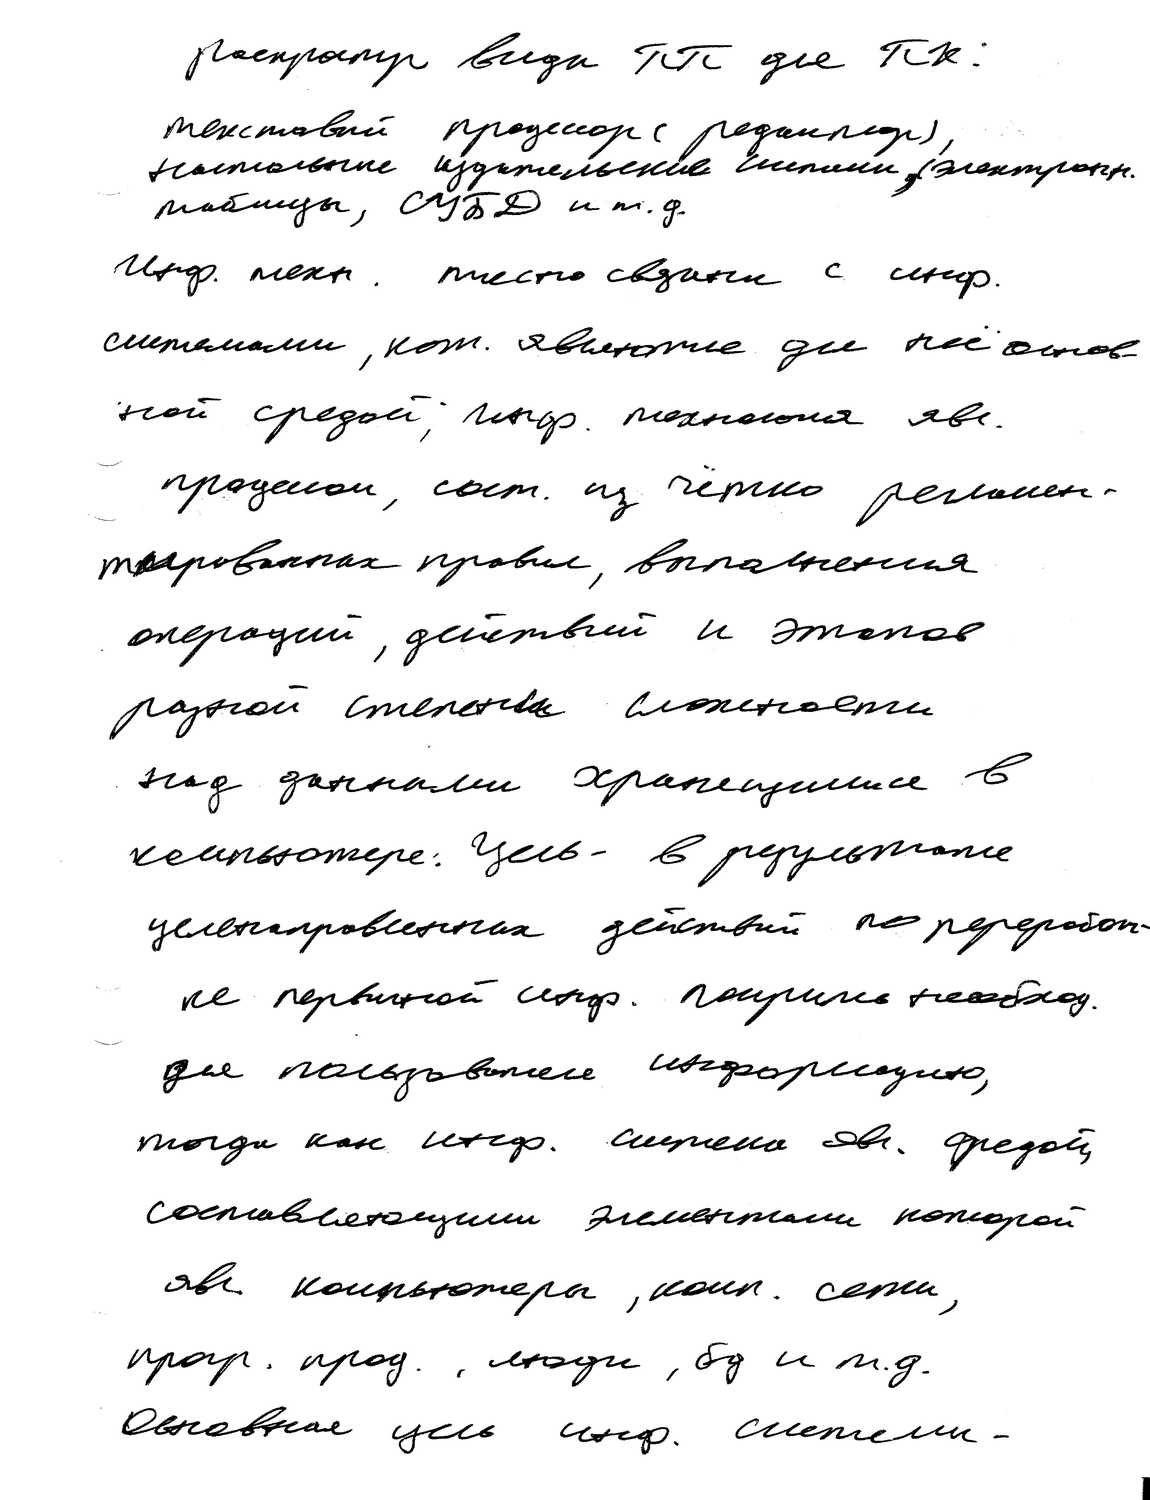 распростр виды ПП для ПК:
текстовый процессор (редактор),
настольные издательские системы, (электронн.
таблицы, СУБД и т.д.
Инф. техн. тесно связаны с инф.
системами, кот. являются для неё основ-
ной средой; Инф. технология явл.
процессом, сост. из чётко регламен-
тированных правил, выполнения
операций, действий и этапов
разной степени сложности
над данными хранящимися в
компьютере. Цель - в результате
целенаправленных действий по переработ-
ке первичной инф. получить необход.
для пользователя информацию,
тогда как инф. система явл. средой,
составляющими элементами которой
явл. компьютеры, комп. сети,
прогр. прод., люди, бд и т.д.
Основная цель инф. системы -